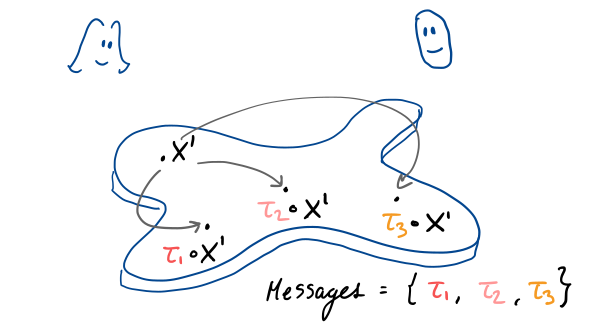 . X'
τ₂ ∘ X'
τ₃ • X'
τ₁ ∘ X'
Messages = { τ₁, τ₂, τ₃ }